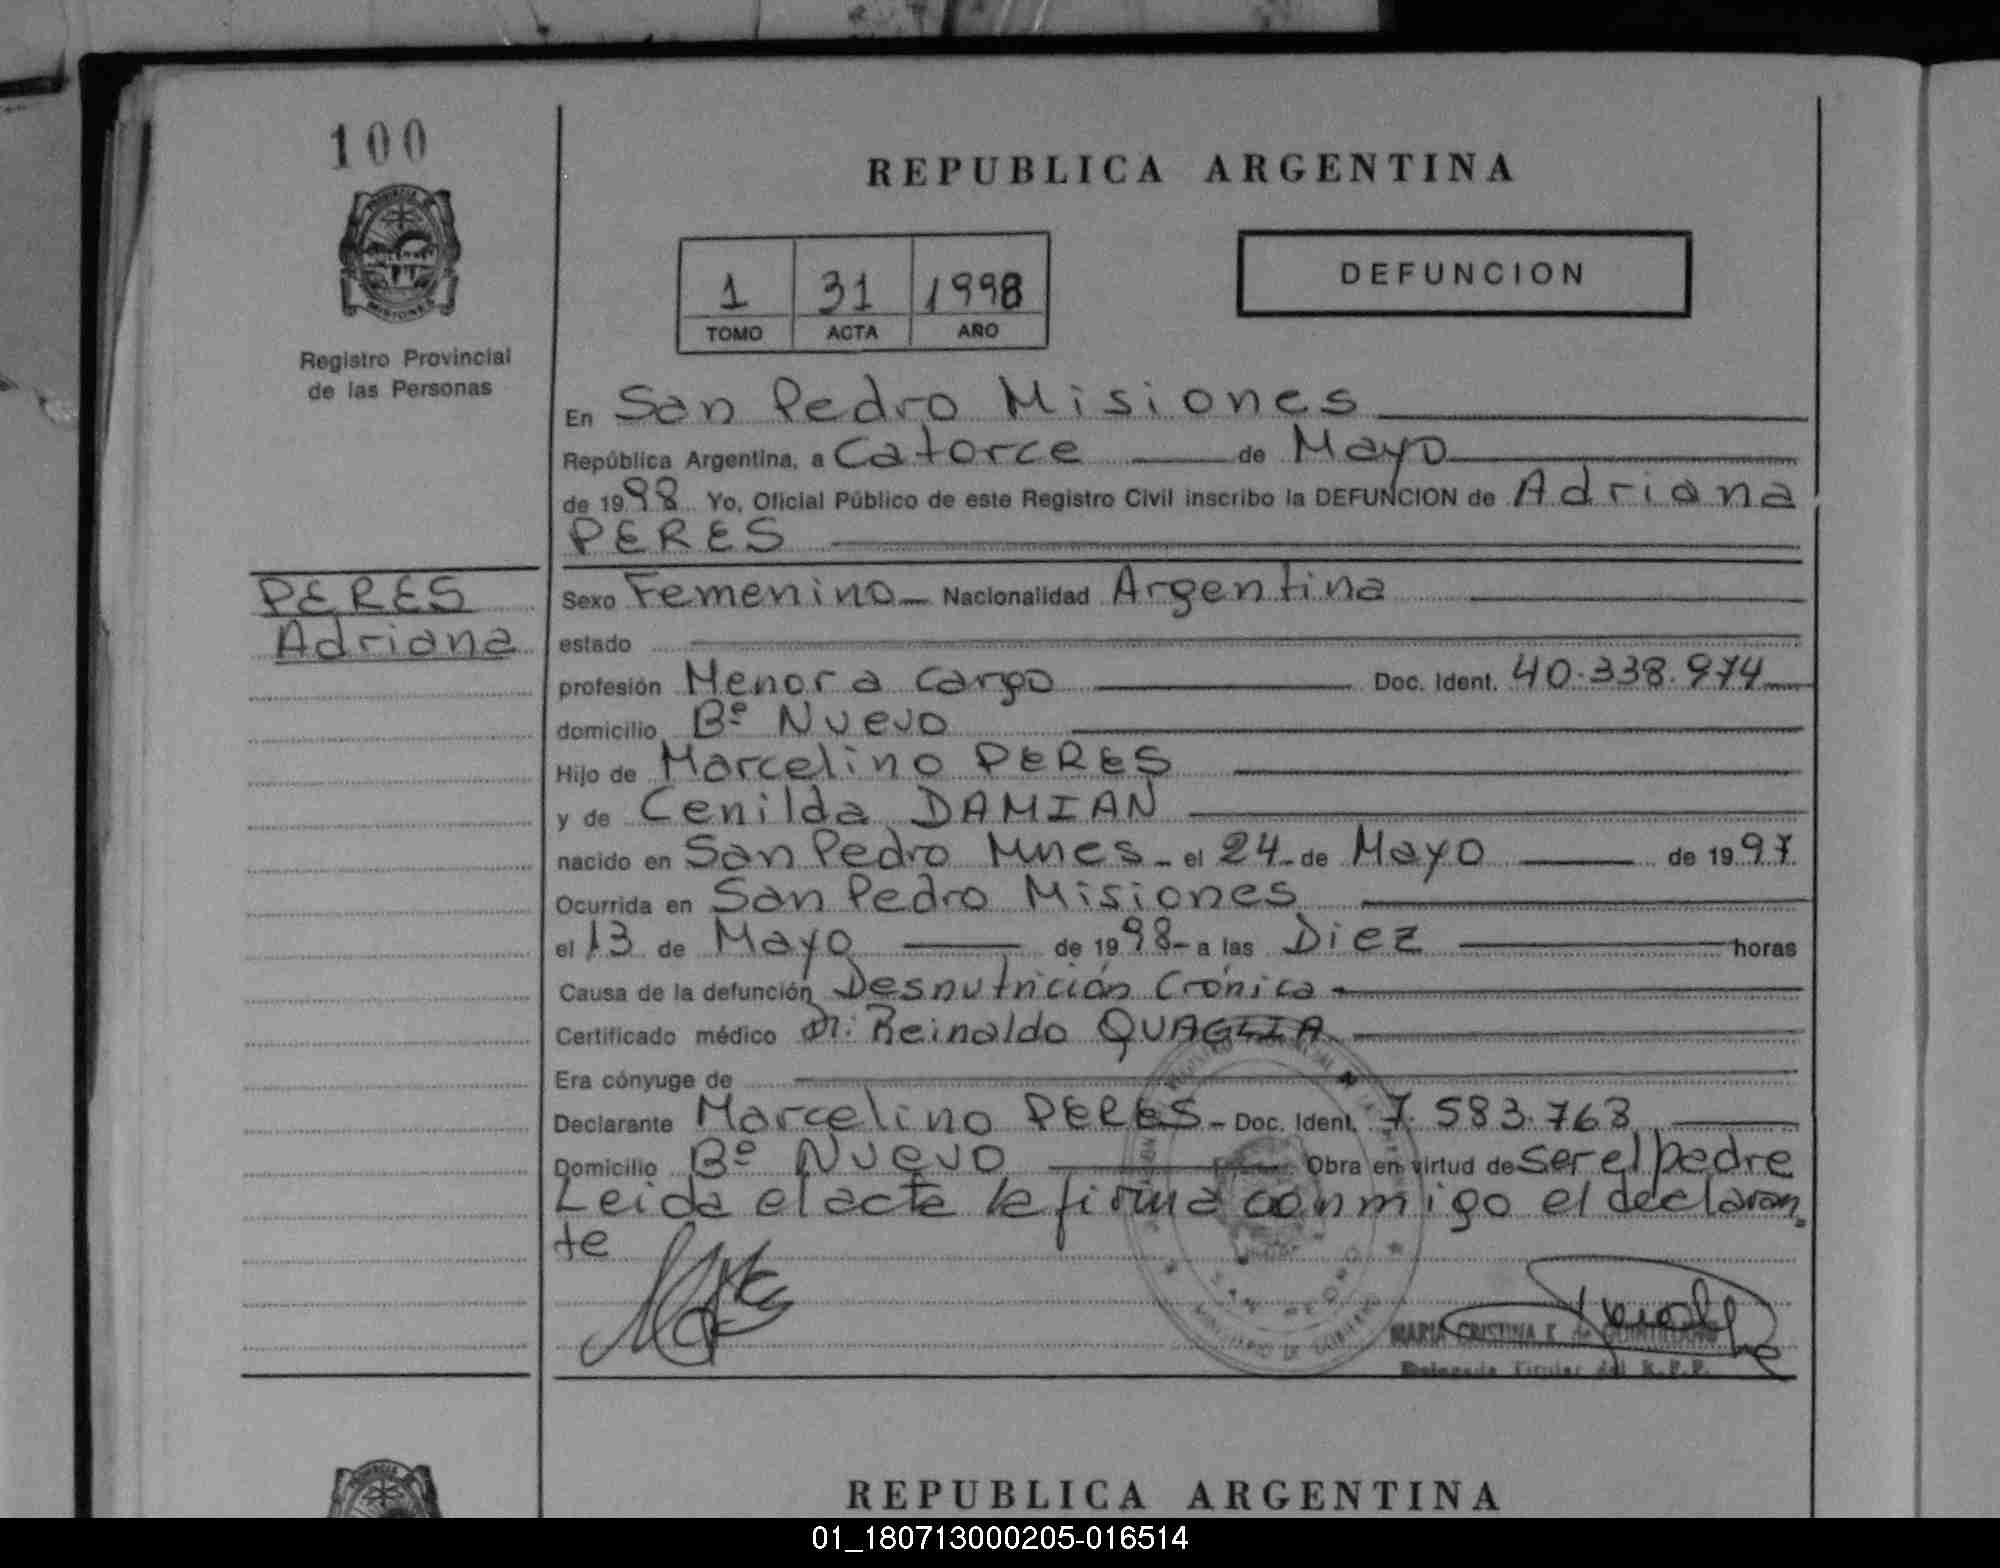 100
Registro Provincial
de las Personas
REPUBLICA ARGENTINA
1 31 1998
TOMO ACTA AÑO
DEFUNCION
En San Pedro Misiones
República Argentina, a Catorce de Mayo
de 1998 Yo, Oficial Público de este Registro Civil inscribo la DEFUNCION de Adriana
PERES
PERES
Adriana
Sexo Femenino Nacionalidad Argentina
estado
profesión Menor a cargo Doc. Ident. 40.338.974
domicilio Bº Nuevo
Hijo de Marcelino PERES
y de Cenilda DAMIAN
nacido en San Pedro Mnes el 24 de Mayo de 1997
Ocurrida en San Pedro Misiones
el 13 de Mayo de 1998 a las Diez horas
Causa de la defunción Desnutrición Crónica
Certificado médico Dr. Reinaldo QUAGLIA
Era cónyuge de
Declarante Marcelino PERES Doc. Ident. 7.583.763
Domicilio Bº Nuevo Obra en virtud de ser el padre
Leida el acta la firma conmigo el declaran
te
MARIA CRISTINA K. de
Delegada Titular del R.P.P.
REPUBLICA ARGENTINA
01_180713000205-016514